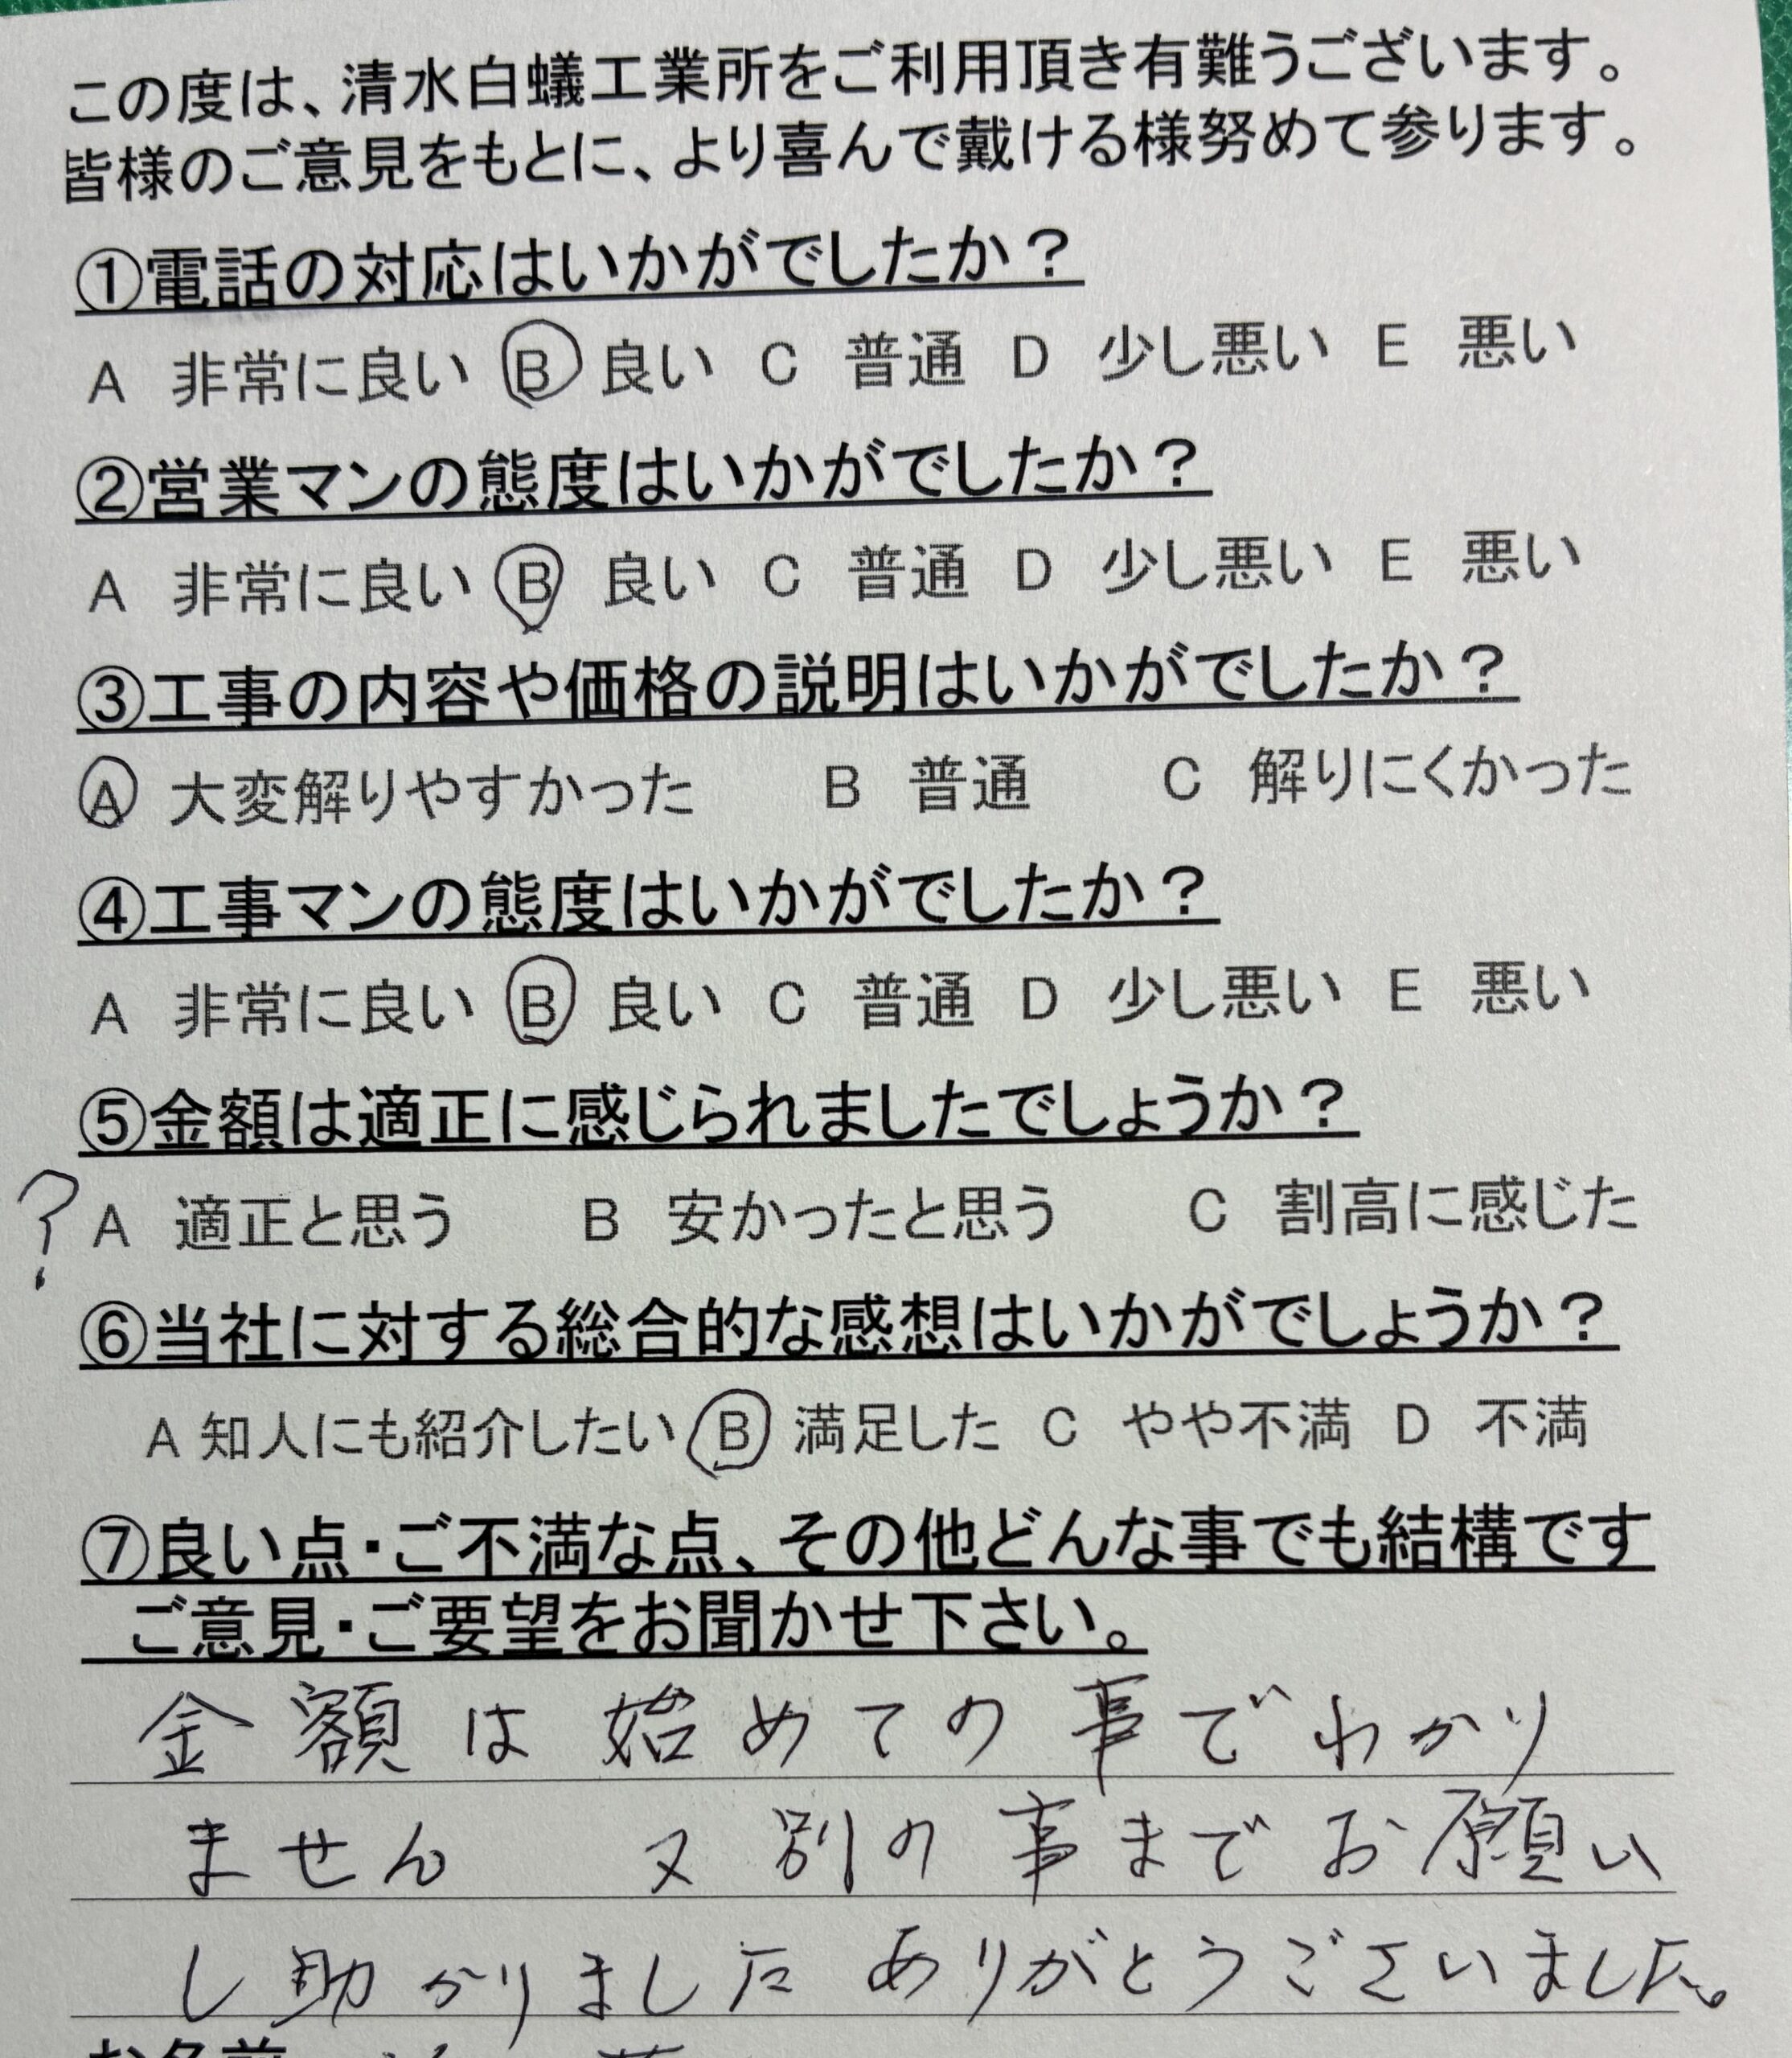 この度は、清水白蟻工業所をご利用頂き有難うございます。
皆様のご意見をもとに、より喜んで戴ける様努めて参ります。
①電話の対応はいかがでしたか？
A 非常に良い B 良い C 普通 D 少し悪い E 悪い
②営業マンの態度はいかがでしたか？
A 非常に良い B 良い C 普通 D 少し悪い E 悪い
③工事の内容や価格の説明はいかがでしたか？
A 大変解りやすかった B 普通 C 解りにくかった
④工事マンの態度はいかがでしたか？
A 非常に良い B 良い C 普通 D 少し悪い E 悪い
⑤金額は適正に感じられましたでしょうか？
? A 適正と思う B 安かったと思う C 割高に感じた
⑥当社に対する総合的な感想はいかがでしょうか？
A 知人にも紹介したい B 満足した C やや不満 D 不満
⑦良い点・ご不満な点、その他どんな事でも結構です
ご意見・ご要望をお聞かせ下さい。
金額は始めての事でわかり
ません 又別の事までお願い
し助かりました ありがとうございました。
お名前